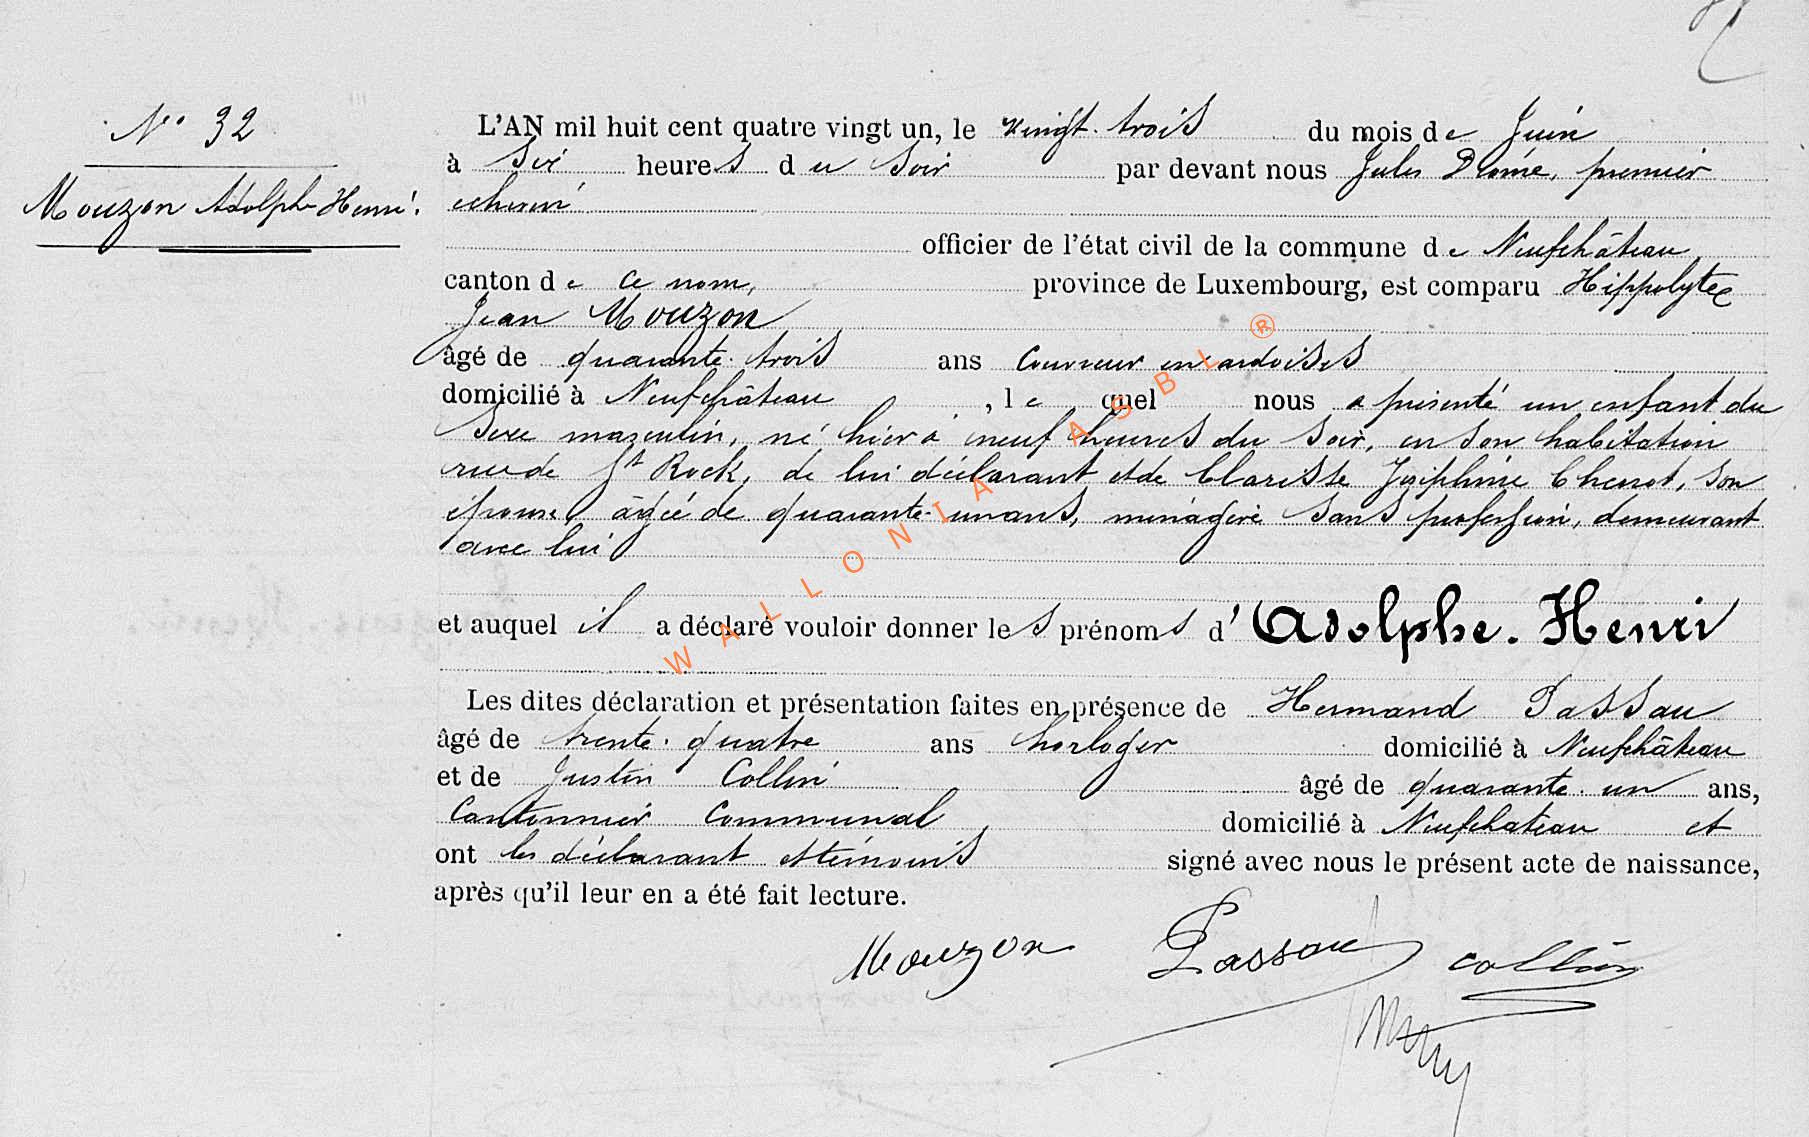 N° 32
Mouzon Adolphe Henri.
L'AN mil huit cent quatre vingt un, le vingt-trois du mois de Juin
à six heures du soir par devant nous Jules premier
échevin
officier de l'état civil de la commune de Neufchâteau
canton de ce nom, province de Luxembourg, est comparu Hippolyte
Jean Mouzon
âgé de quarante-trois ans couvreur en ardoises
domicilié à Neufchâteau, lequel nous a présenté un enfant du
sexe masculin, né hier à neuf heures du soir, en son habitation
rue de St Rock, de lui déclarant et de Clarisse Joséphine son
épouse, âgée de quarante-un ans, ménagère sans profession, demeurant
avec lui
et auquel il a déclaré vouloir donner les prénoms d'Adolphe-Henri
Les dites déclaration et présentation faites en présence de Hermand Passau
âgé de trente-quatre ans horloger domicilié à Neufchâteau
et de Justin Collin âgé de quarante-un ans,
Cantonnier Communal domicilié à Neufchateau et
ont les déclarant et témoins signé avec nous le présent acte de naissance,
après qu'il leur en a été fait lecture.
Mouzon Passau Collin
WALLONIA ASBL ®